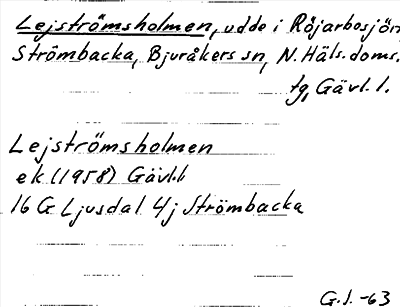 Lejströmsholmen, udde i Röjarbosjön,
Strömbacka, Bjuråkers sn, N. Häls. doms.
tg, Gävl. l.
Lejströmsholmen
ek (1958) Gävl.l.
16 G Ljusdal 4j Strömbacka
G.J. -63